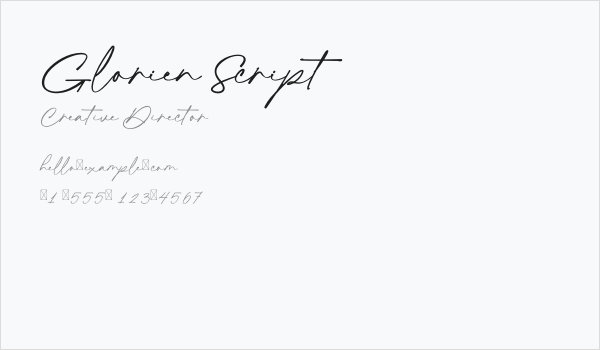 Glorien Script
Creative Director
hello□example□com
□1 □555□ 123□4567